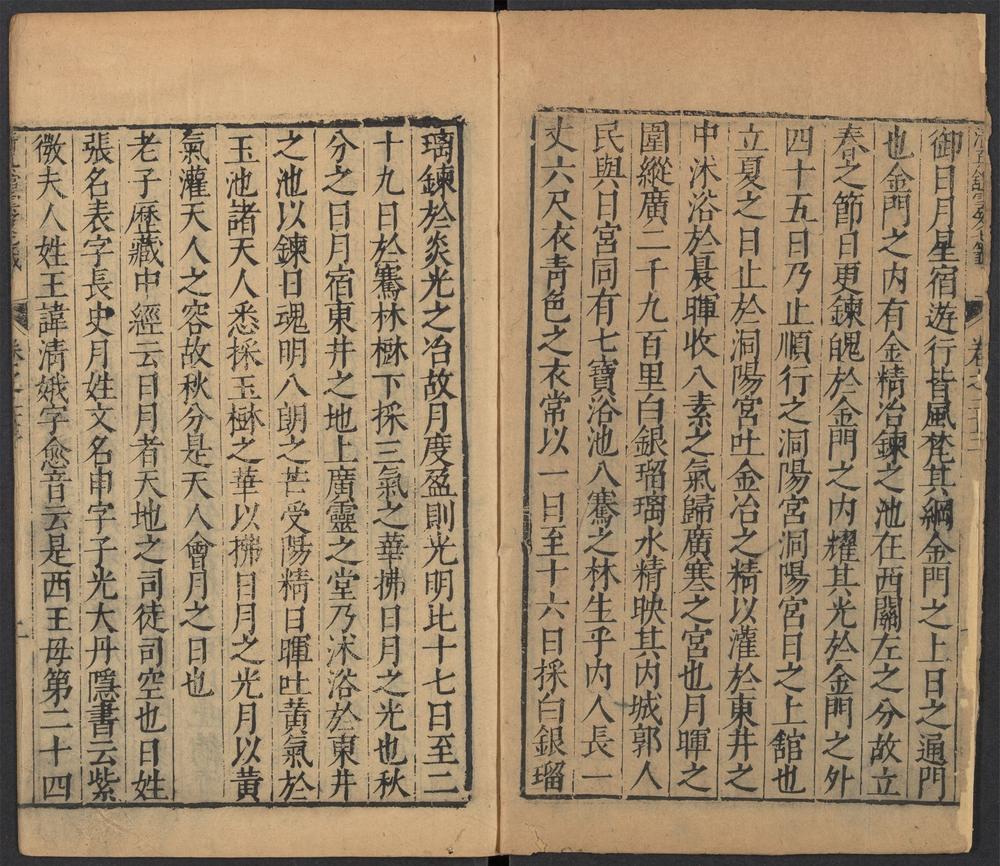 御日月星宿遊行皆風梵其綱金門之上日之通門
也金門之内有金精冶鍊之池在西關左之分故立
春之節日更鍊魄於金門之内耀其光於金門之外
四十五日乃止順行之洞陽宮洞陽宮日之上舘也
立夏之日止於洞陽宮吐金冶之精以灌於東井之
中沐浴於晨暉收八素之氣歸廣寒之宮也月暉之
圍縱廣二千九百里白銀瑠璃水精映其内城郭人
民與日宮同有七寶浴池八騫之林生乎内人長一
丈六尺衣青色之衣常以一日至十六日採白銀瑠
璃鍊於炎光之冶故月度盈則光明比十七日至二
十九日於騫林樹下採三氣之華拂日月之光也秋
分之日月宿東井之地上廣靈之堂乃沐浴於東井
之池以鍊日魂明八朗之芒受陽精日暉吐黄氣於
玉池諸天人悉採玉樹之華以拂日月之光月以黄
氣灌天人之容故秋分是天人會月之日也
老子歷藏中經云日月者天地之司徒司空也日姓
張名表字長史月姓文名申字子光大丹隱書云紫
微夫人姓王諱清娥字愈音云是西王母第二十四